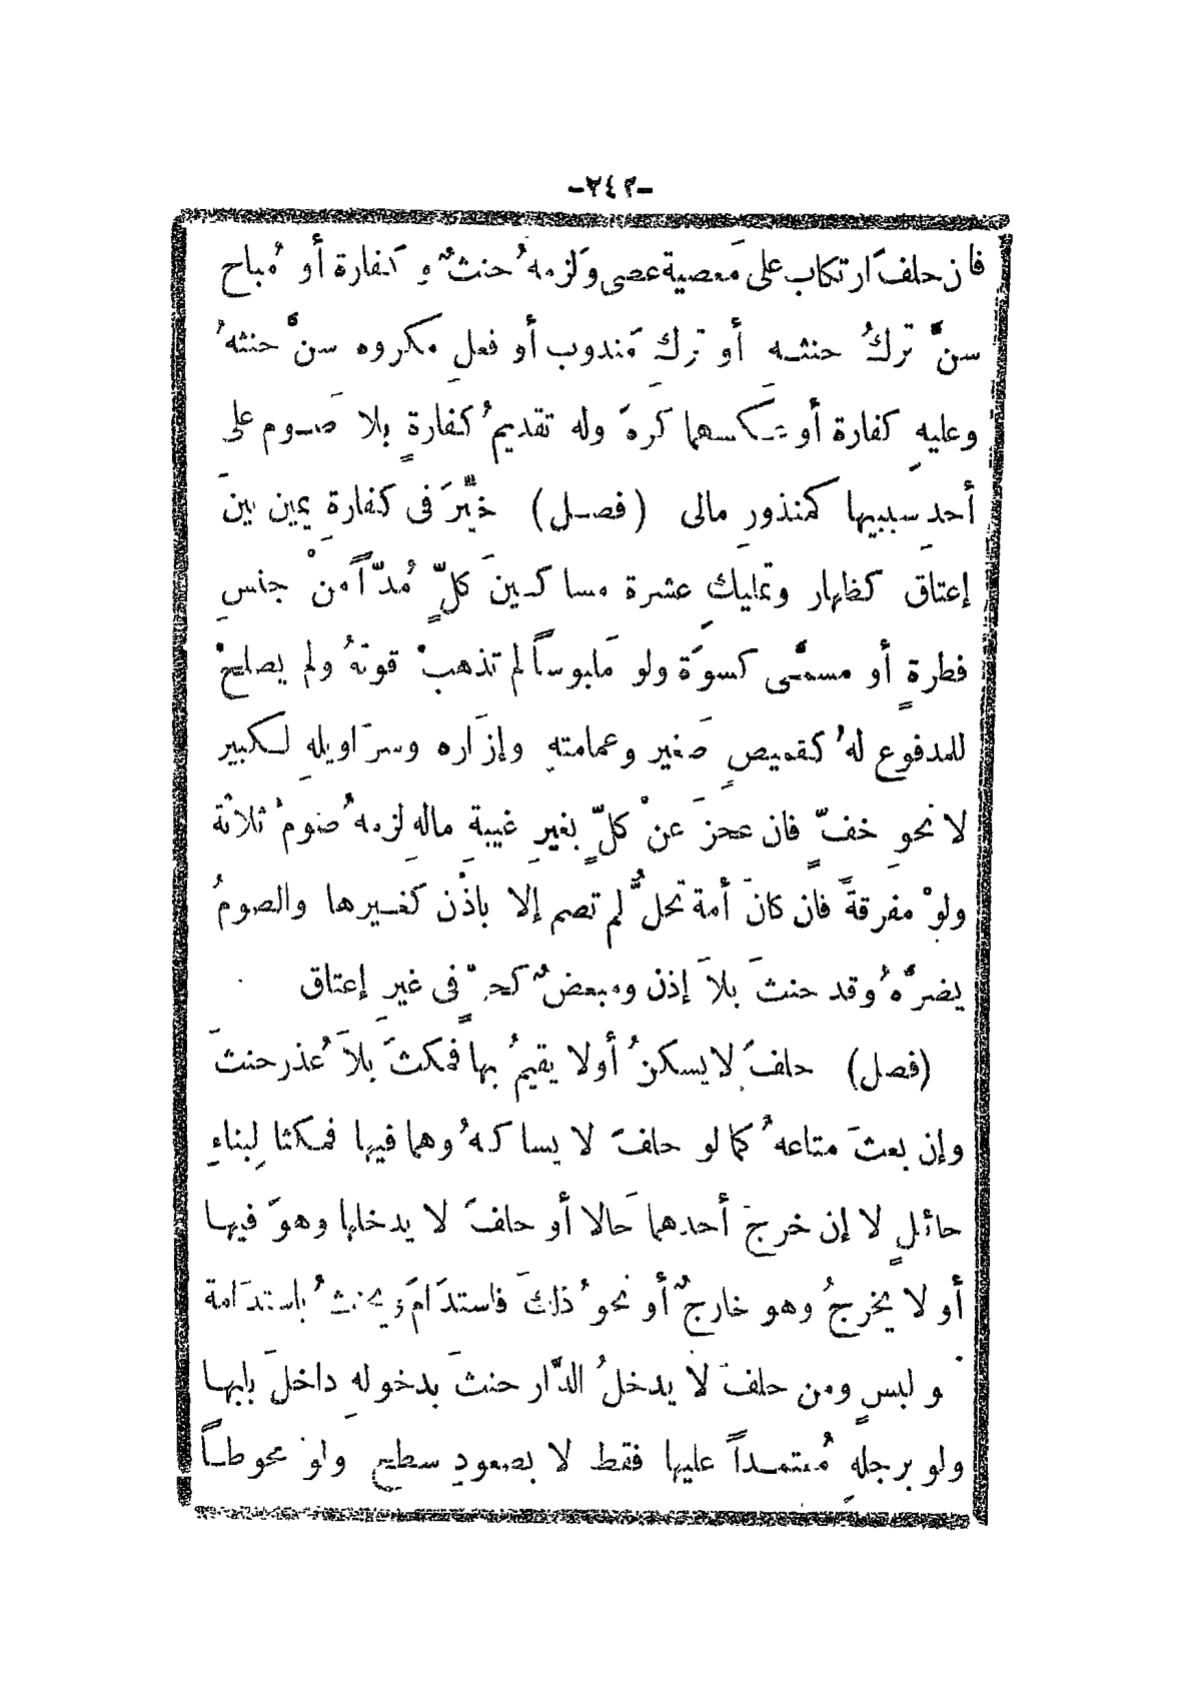 -٢٤٢-
فان حلفَ ارتكاب على مَعصية عصى ولَزمهُ حنثٌ و كفارة أو مُباح
سنَّ تركُ حنثـه أو ترك مَندوب أو فعلِ مكروه سنَّ حنثهُ
وعليهِ كفارة أو عـكسهما كَرهَ وله تقديمُ كفارةٍ بلا صَـوم على
أحدِ سببيها كمنذورِ مالى (فصـل) خيِّرَ فى كفارةِ يمين بينَ
إعتاق كظهار وتمليكِ عشرة مساكـينَ كلٍّ مُدّاً منْ جنسِ
فطرةٍ أو مسمَّى كسوَة ولو مَلبوساً لم تذهبْ قوتهُ ولم يصلحْ
للمدفوع لهُ كقميصٍ صَغير وعمامتهِ وإزَاره وسرَاويلهِ لـكبير
لا نحوِ خفٍّ فان عجزَ عنْ كلٍّ بغيرِ غيبةِ مالهِ لزمهُ صومُ ثلاثة
ولوْ مفرقةً فان كانَ أمة تحلُّ لم تصم إلا باذْن كغـيرها والصومُ
يضرُّهُ وقد حنثَ بلاَ إذن ومبعضٌ كحرٍّ فى غيرِ إعتاق
(فصل) حلفَ لايسكنُ أولا يقيمُ بها فمكثَ بلاَ عُذر حنثَ
وإن بعثَ متاعهُ كما لو حلفَ لا يساكـهُ وهما فيها فمكثا لِبناءِ
حائلٍ لا إن خرجَ أحدهما حَالا أو حلفَ لا يدخلها وهوَ فيهـا
أو لا يخرجُ وهو خارجٌ أو نحوُ ذلكَ فاستدَامَ ويحنثُ باستدَامة
و لبسٍ ومن حلفَ لا يدخلُ الدَّار حنثَ بدخولهِ داخلَ بابهـا
ولو برجلهِ مُعتمـداً عليها فقط لا بصعودِ سطحٍ ولوْ محوطـاً